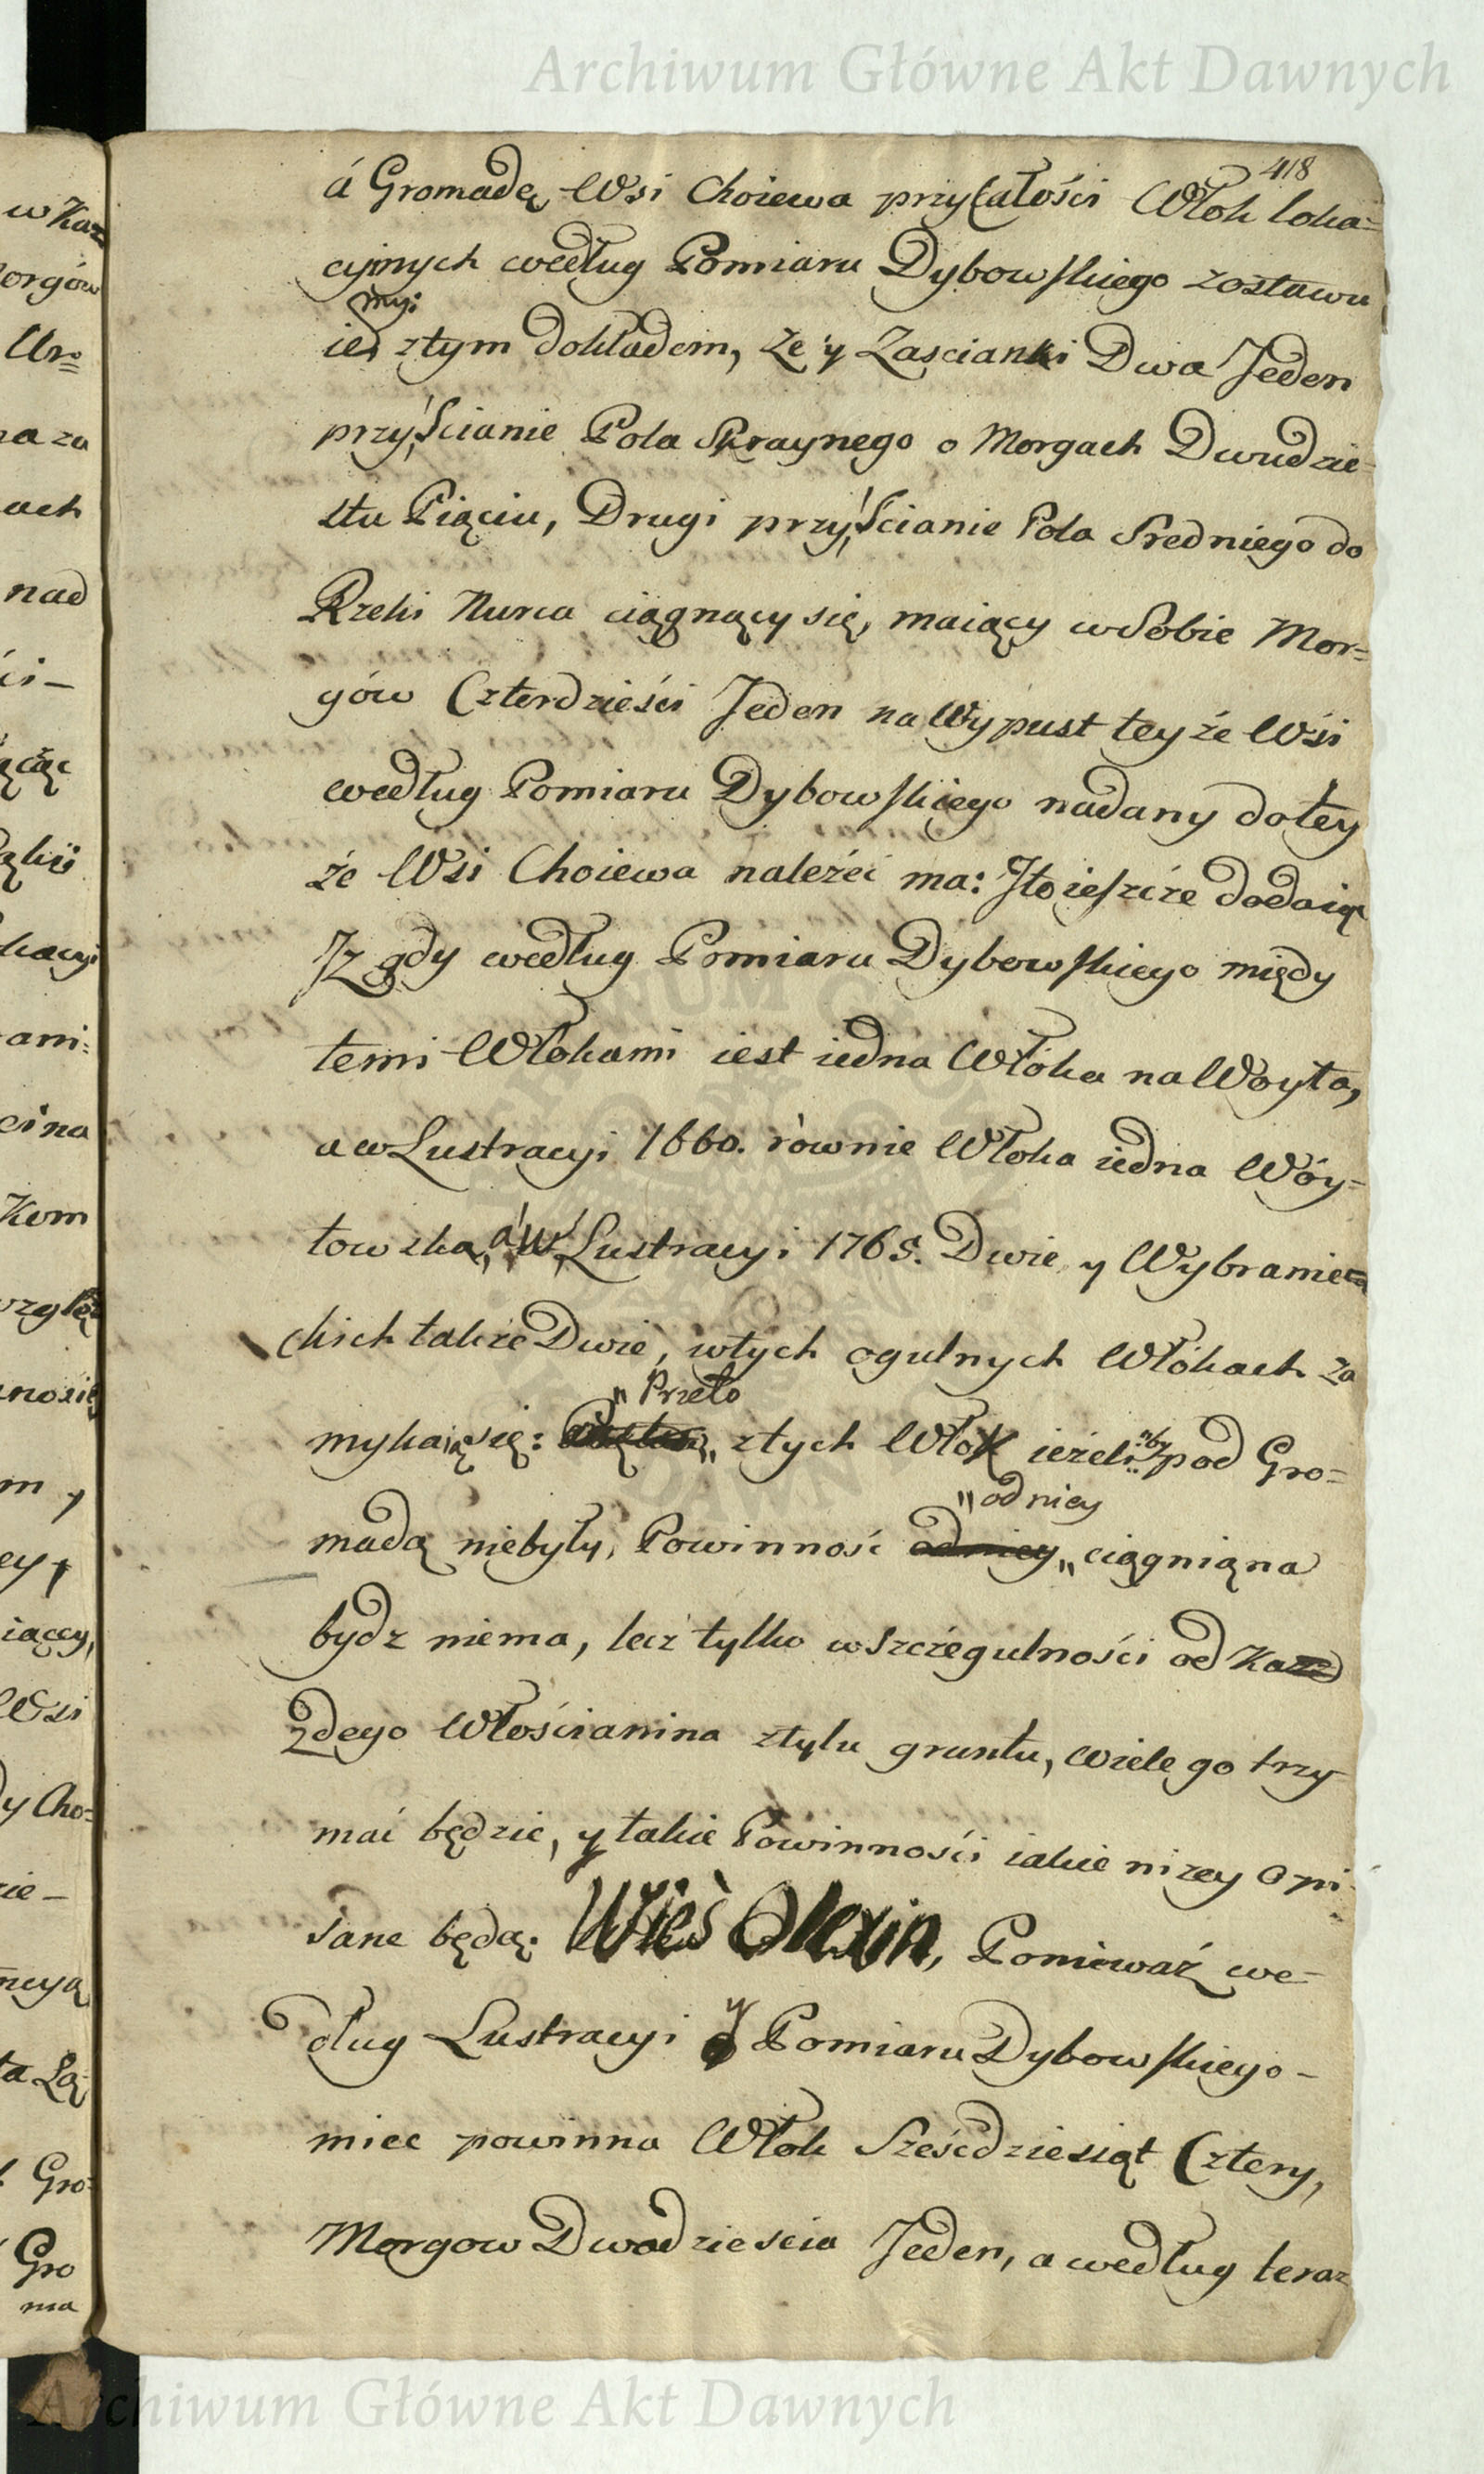 Archiwum Główne Akt Dawnych
418
á Gromadę Wsi Choiewa przy Całości Włok loka=
cyinych według Pomiaru Dybowskiego zostawu
my:
ie, z tym dokładem, że y Zascianki Dwa Jeden
przy Ścianie Pola Skraynego o Morgach Dwudzie=
stu Piąciu, Drugi przy Ścianie Pola Sredniego do
Rzeki Nurca ciągnący się, maiący w Sobie Mor=
gów Czterdzieści Jeden na Wypust teyże Wśi
według Pomiaru Dybowskiego nadany do tey
że Wsi Choiewa należéć ma: J to ieszcze dodaiąc
Jż gdy według Pomiaru Dybowskiego między
temi Włokami iest iedna Włóka na Woyta,
a w Lustracyi 1660. równie Włoka iedna Wóy=
towska, á w Lustracyi 1765. Dwie y Wybraniec
ckich także Dwie, w tych ogulnych Włókach za
" Przeto
mykaią się: z tych Włok ieżeliby pod Gro=
" od niey
madą niebyły, Powinność od niey " ciągniąna
bydz niema, lecz tylko w Szczegulności od Każ
żdego Włościanina z tylu gruntu, wiele go trzy
mać będzie, y takie Powinnośći iakie niżey Opi
sane będą. Wieś Olexin, Ponieważ we=
dług Lustracyi y Pomiaru Dybowskiego-
miec powinna Włok Sześćdziesiąt Cztery,
Morgow Dwadziescia Jeden, a według teraz
w Kaz
orgów
Ur=
na za
ach
nad
ści-
kacyi
ani:
ci na
Kom
wzglę
nosię
m y
ey,
iącey,
Wsi
y Cho=
zie-
ncyą
Gro=
Gro
ma
Archiwum Główne Akt Dawnych